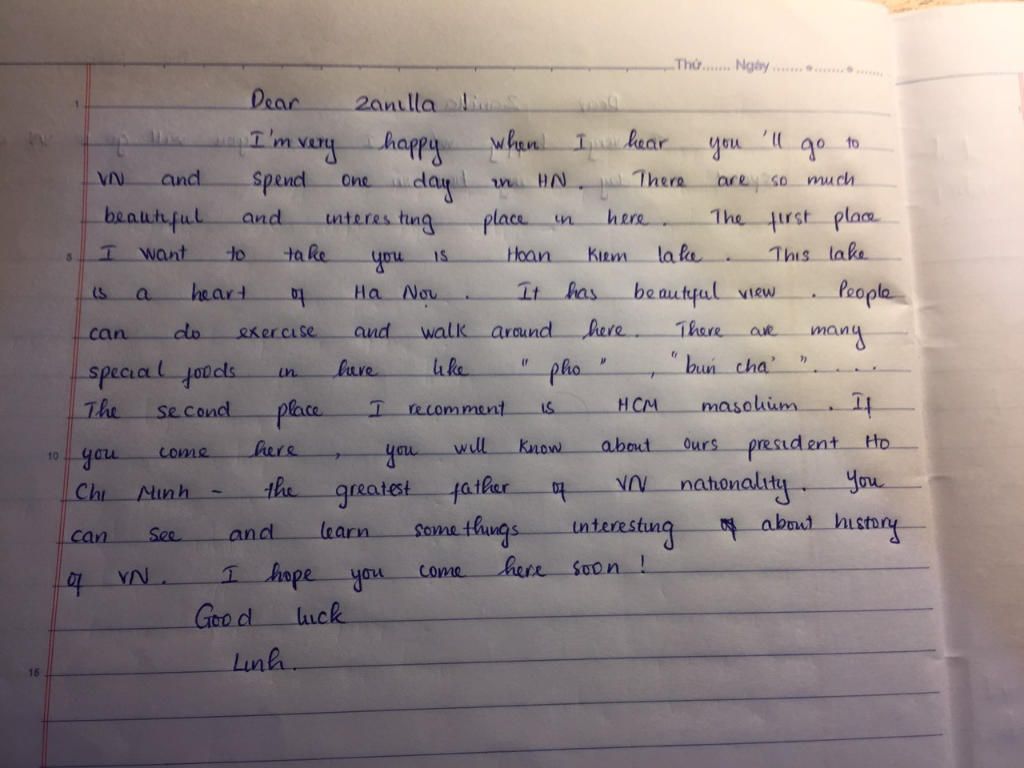 Thứ....... Ngày ....... . ....... . .......
1 Dear Zanilla !
I'm very happy when I hear you 'll go to
VN and spend one day in HN. There are so much
beautiful and interesting place in here. The first place
5 I want to take you is Hoan Kiem lake. This lake
is a heart of Ha Noi. It has beautiful view. People
can do exercise and walk around here. There are many
special foods in here like "pho", "bún chả"....
The second place I recomment is HCM masolium. If
10 you come here, you will know about ours president Ho
Chi Minh - the greatest father of VN nationality. You
can see and learn somethings interesting about history
of VN. I hope you come here soon!
Good luck
15 Linh.